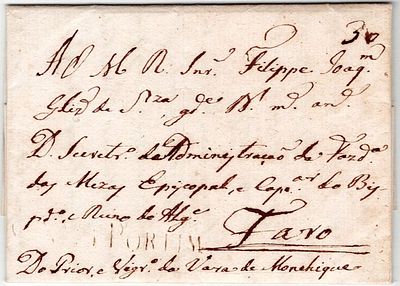 30
A O M R Snr. Filippe Joaqm
de Sza gde D. mt. ants.
D. Secretro. da Administraçaõ da Fazda
das Mezas Episcopal, e Capar do Bis
pdo. e Reino do Alge.
PORTIM
Faro
Do Prior, e Vigro. da Vara de Monchique